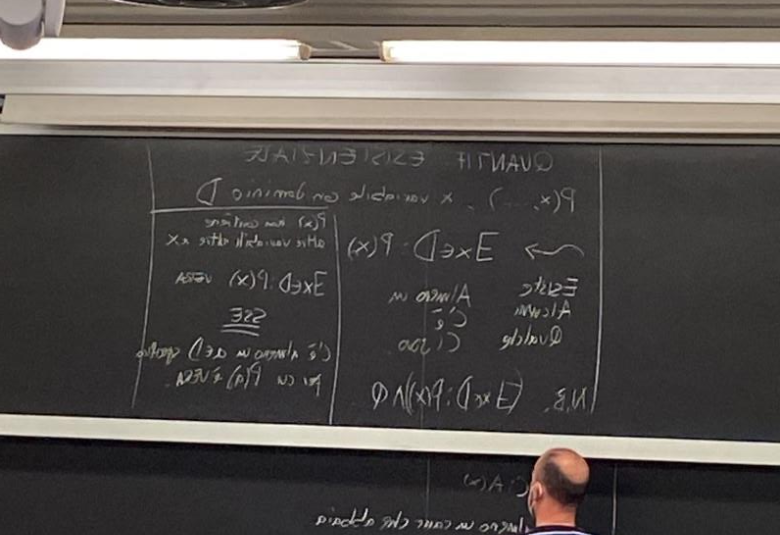 QUANTIF ESISTENZIALE
P(x, ...), x variabile con dominio D
∃x∈D : P(x)
Esiste Almeno un
Alcuni C'è
Qualche Ci sono
N.B. (∃x∈D : P(x)) ∧ Q
P(x) non contiene
altre variabili oltre a x
∃x∈D : P(x) VERA
SSE
C'è almeno un a∈D specifico
per cui P(a) è VERA.
C : A(x)
almeno un cane che abbaia